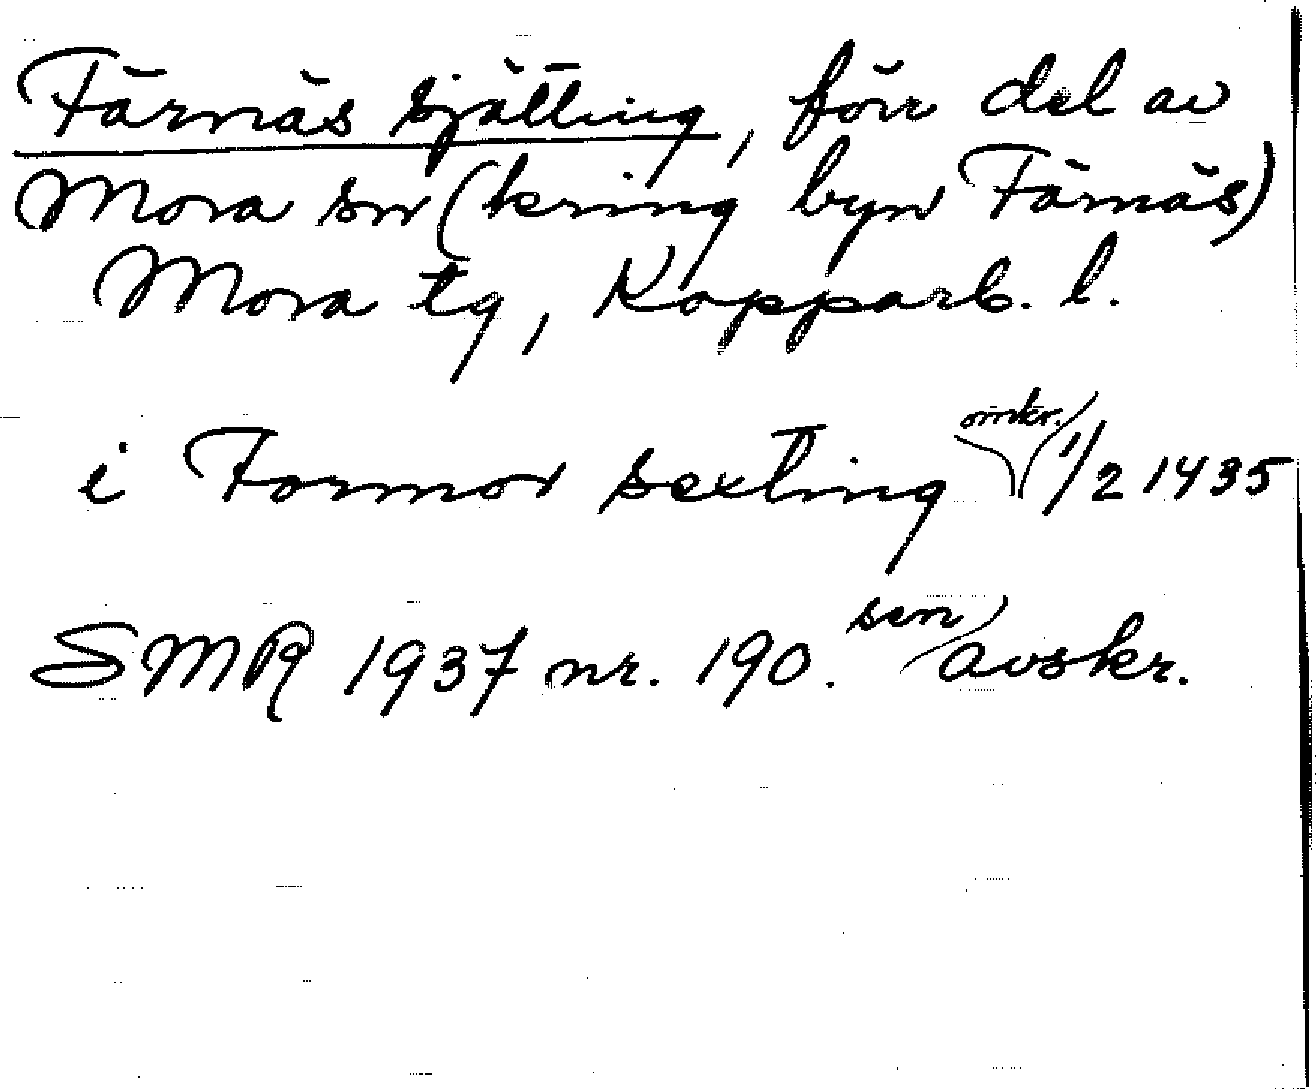 Färnäs sjätting, förr del av
Mora sn (kring byn Färnäs)
Mora tg, Kopparb. l.
i Formor sexting omkr. 1/2 1435
SMR 1937 nr. 190. sen avskr.